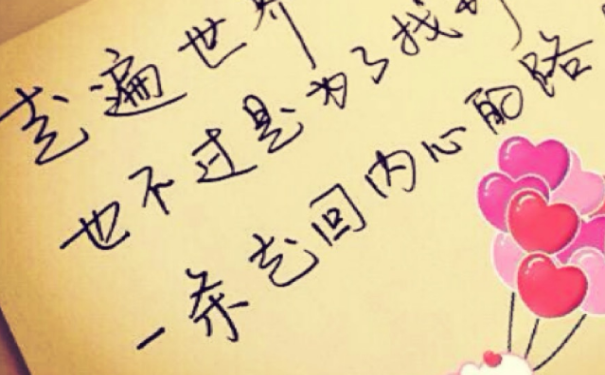 走遍世界
也不过是为了找到
一条走回内心的路